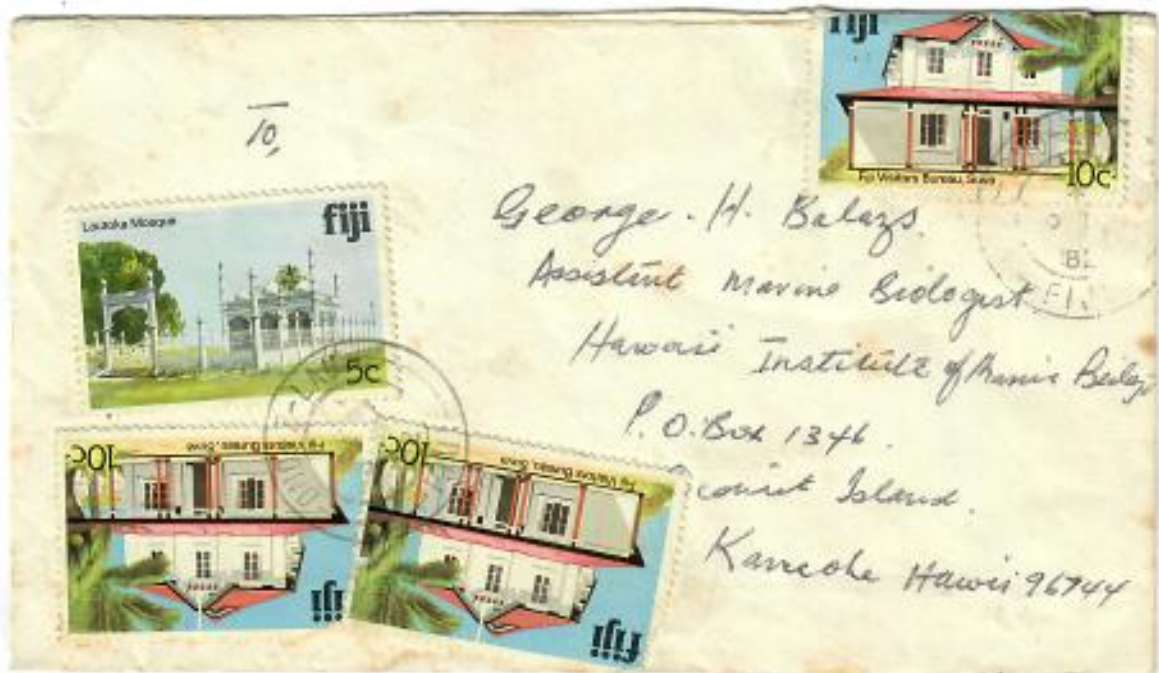 fiji
Fiji Visitors Bureau, Suva
10c
10,
Lautoka Mosque
fiji
5c
George. H. Balazs.
Assistent Marine Biologist
Hawaii Institute of Marine Biology
P.O. Box 1346.
Island.
Kaneohe Hawii 96744
10c
Fiji Visitors Bureau, Suva
fiji
10c
Fiji Visitors Bureau, Suva
fiji